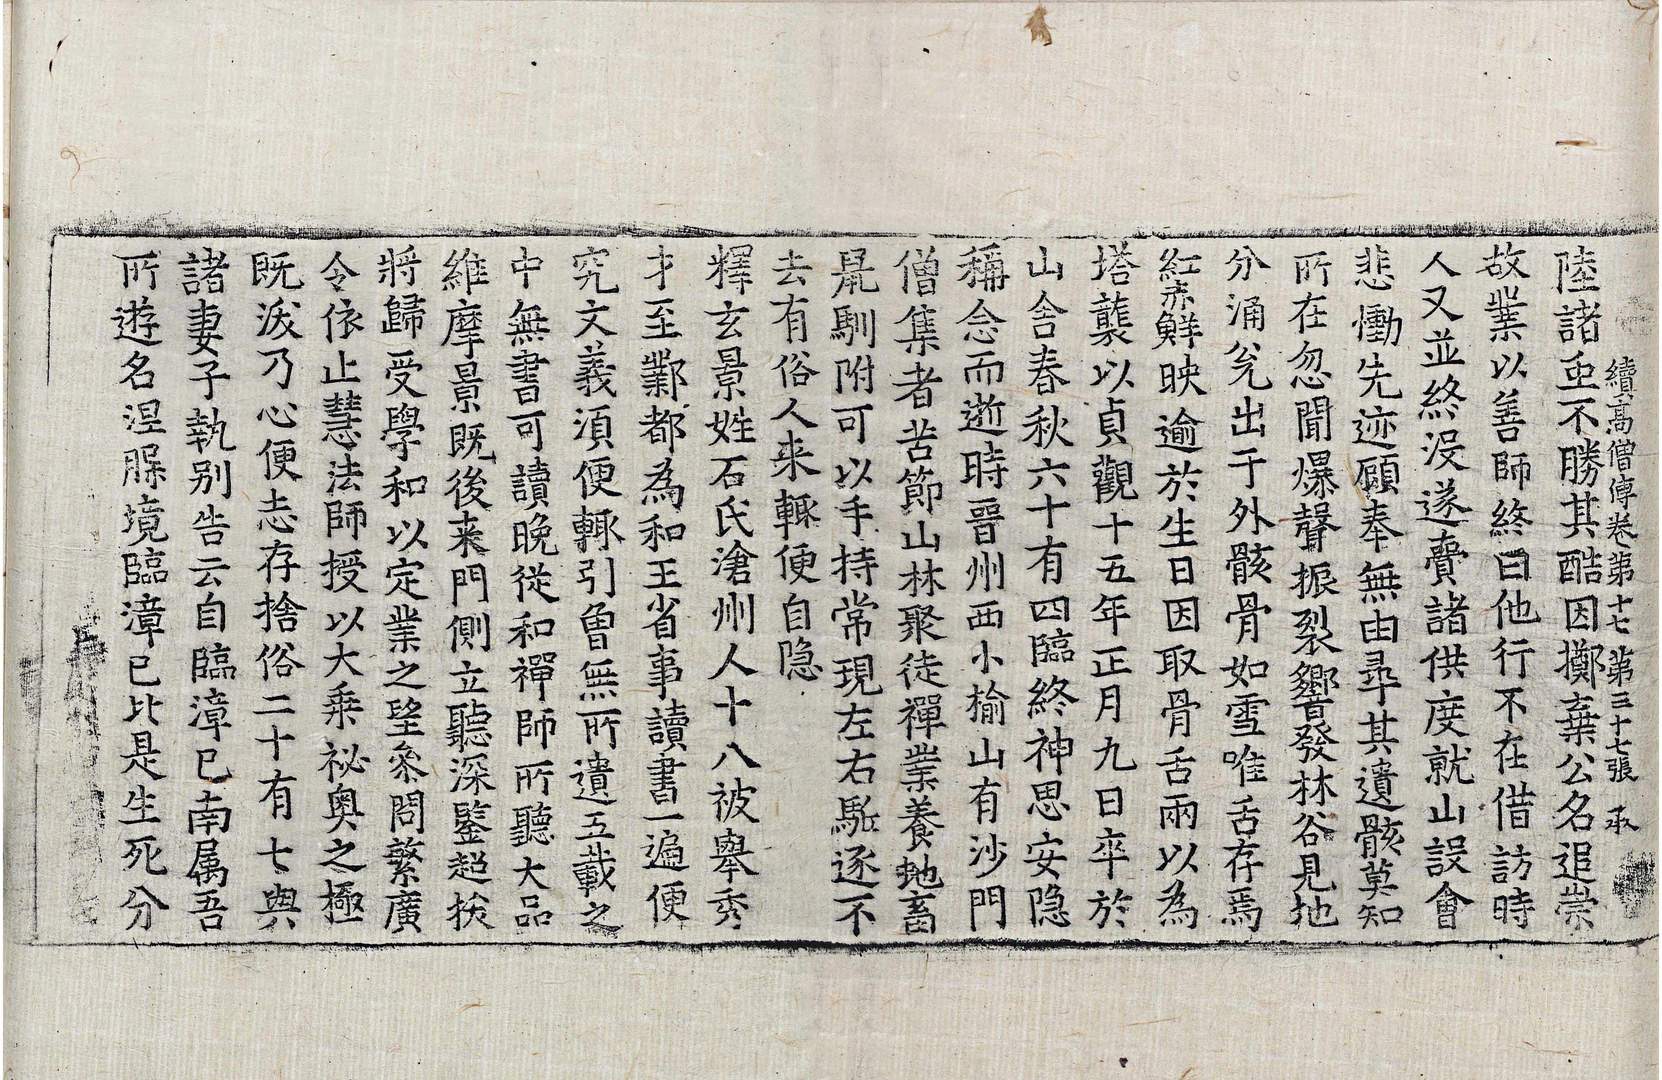 續高僧傳卷第十七 第三十七張 承
陸諸王不勝其酷因擲棄公名追崇
故業以善師終曰他行不在借訪時
人又並終没遂賷諸供度就山設會
悲慟先迹願奉無由尋其遺骸莫知
所在忽聞爆聲振裂響發林谷見地
分涌瓮出于外骸骨如雪唯舌存焉
紅赤鮮映逾於生日因取骨舌兩以為
塔襲以貞觀十五年正月九日卒於
山舍春秋六十有四臨終神思安隐
稱念而逝時晉州西小榆山有沙門
僧集者苦節山林聚徒禪業養虵畜
鼠馴附可以手持常現左右駈逐不
去有俗人来輙便自隐
釋玄景姓石氏滄州人十八被舉秀
才至鄴都為和王省事讀書一遍便
究文義湏便輙引曾無所遺五載之
中無書可讀晚從和禪師所聽大品
維摩景既後来門側立聽深鑒超挨
將歸受學和以定業之望叅問繁廣
令依止慧法師授以大乘祕奥之極
既沷乃心便志存捨俗二十有七與
諸妻子執别告云自臨漳已南属吾
所遊名涅脲境臨漳已比是生死分